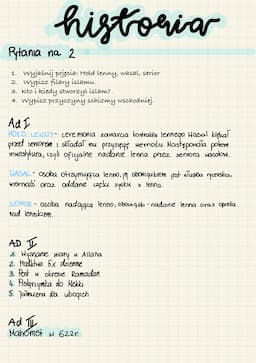 historia
Pytania na 2
1. Wyjaśnij pojęcia: Hołd lenny, wasal, senior
2. Wypisz filary islamu.
3. Kto i kiedy stworzył islam?
4. Wypisz przyczyny schizmy wschodniej.
Ad I.
HOŁD LENNY- ceremonia zawarcia kontraktu lennego. Wasal klękał
przed seniorem i składał mu przysięgę wierności. Następowała potem
inwestytura, czyli oficjalne nadanie lenna przez seniora wasalowi.
WASAL- osoba otrzymująca lenno, jej obowiązkiem jest służba
wierność oraz oddanie części zysku z lenna.
SENIOR- osoba, nadająca lenno, obowiązek- nadanie lenna oraz opieka
nad lennikiem.
AD II
1. Wyznanie wiary w Allaha
2. Modlitwa 5x dziennie
3. Post w okresie Ramadan
4. Pielgrzymka do Mekki
5. Jałmużna dla ubogich
Ad III
Mahomet w 622r.